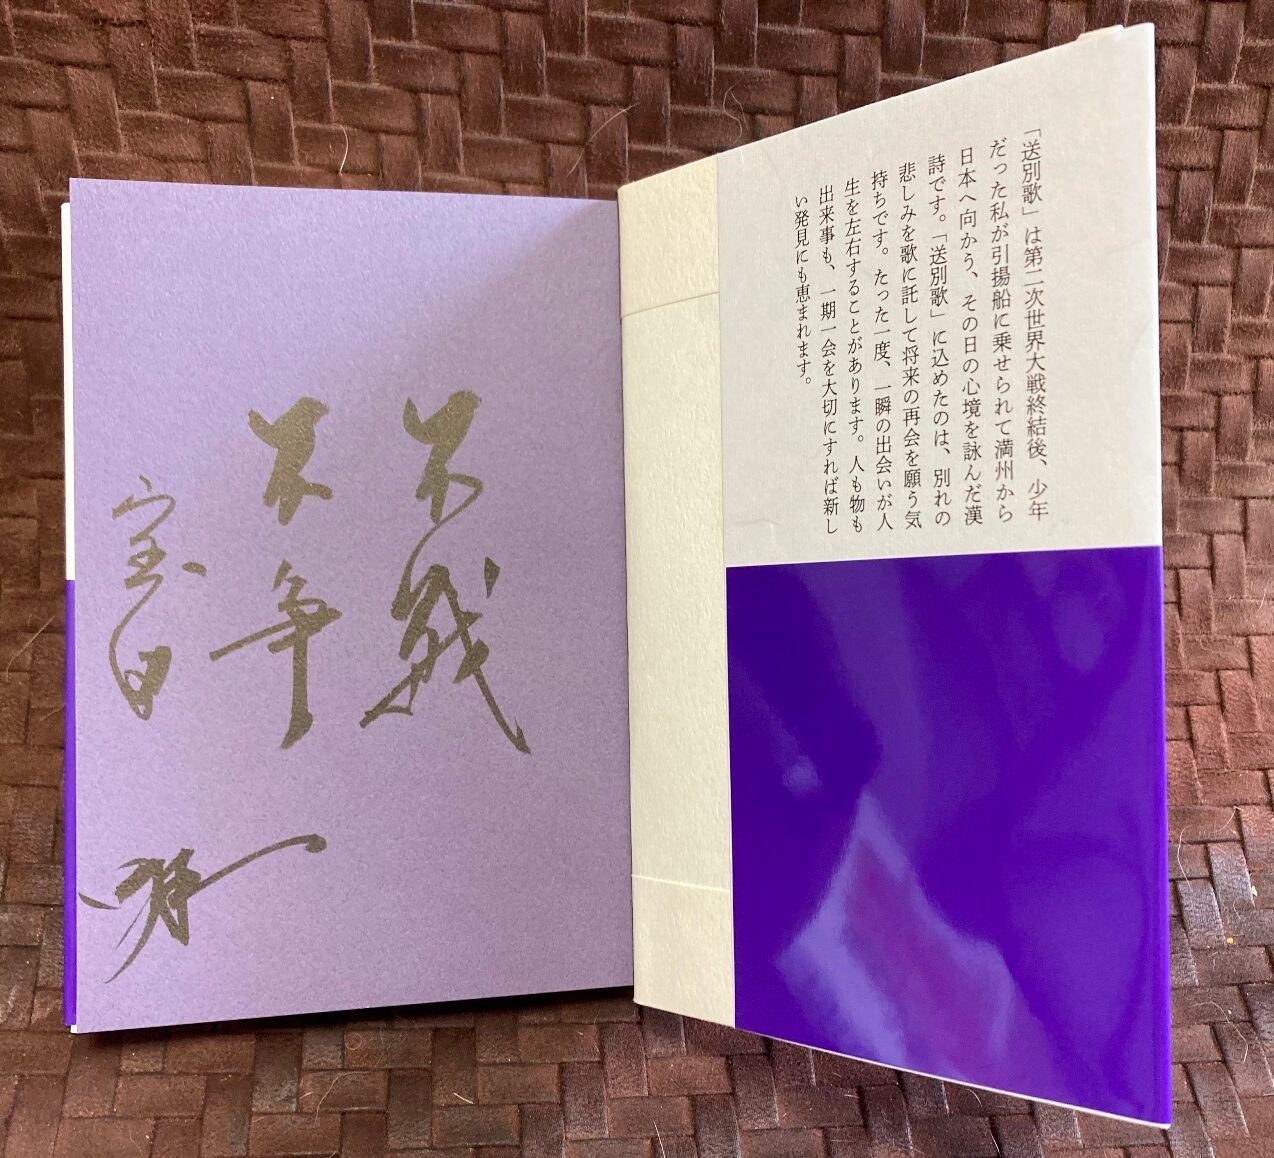 「送別歌」は第二次世界大戦終結後、少年
だった私が引揚船に乗せられて満州から
日本へ向かう、その日の心境を詠んだ漢
詩です。「送別歌」に込めたのは、別れの
悲しみを歌に託して将来の再会を願う気
持ちです。たった一度、一瞬の出会いが人
生を左右することがあります。人も物も
出来事も、一期一会を大切にすれば新し
い発見にも恵まれます。
不戦
不争
宝田